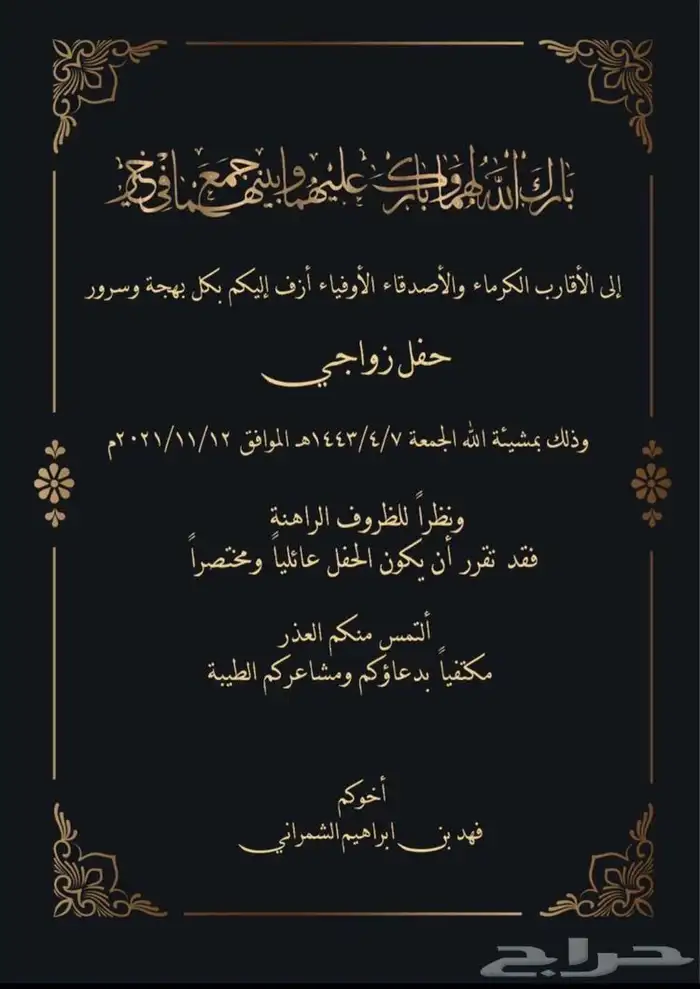 بارك الله لهما وبارك عليهما وجمع بينهما في خير
إلى الأقارب الكرماء والأصدقاء الأوفياء أزف إليكم بكل بهجة وسرور
حفل زواجي
وذلك بمشيئة الله الجمعة ١٤٤٣/٤/٧هـ الموافق ٢٠٢١/١١/١٢م
ونظراً للظروف الراهنة
فقد تقرر أن يكون الحفل عائلياً ومختصراً
ألتمس منكم العذر
مكتفياً بدعاؤكم ومشاعركم الطيبة
أخوكم
فهد بن ابراهيم الشمراني
حراج